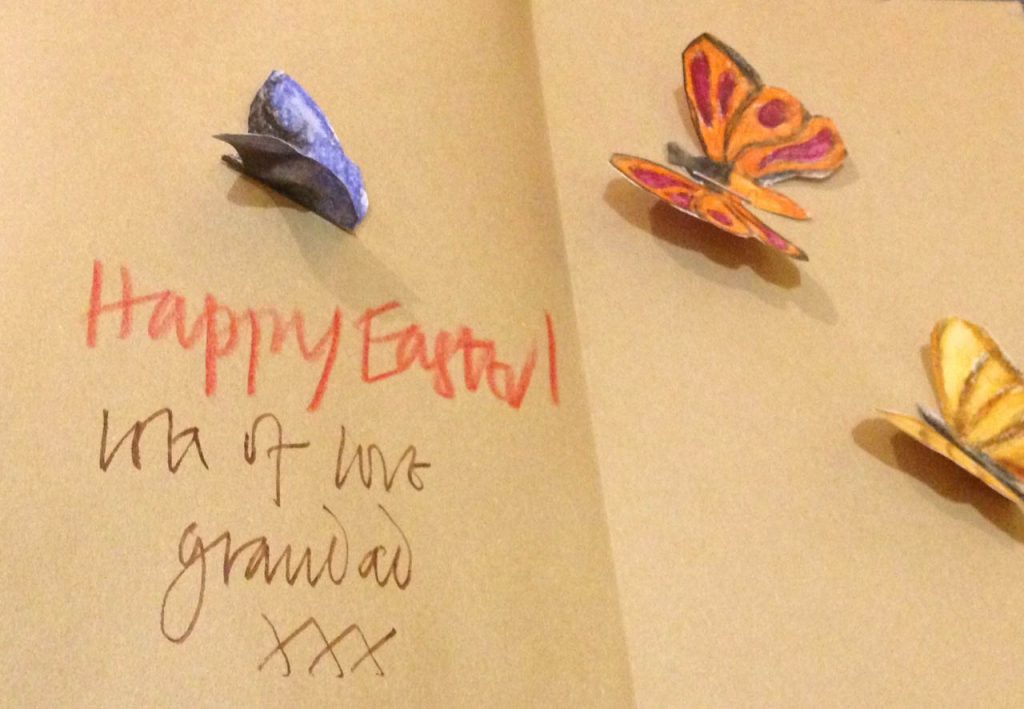 Happy Easter!
lots of love
grandad
xxx